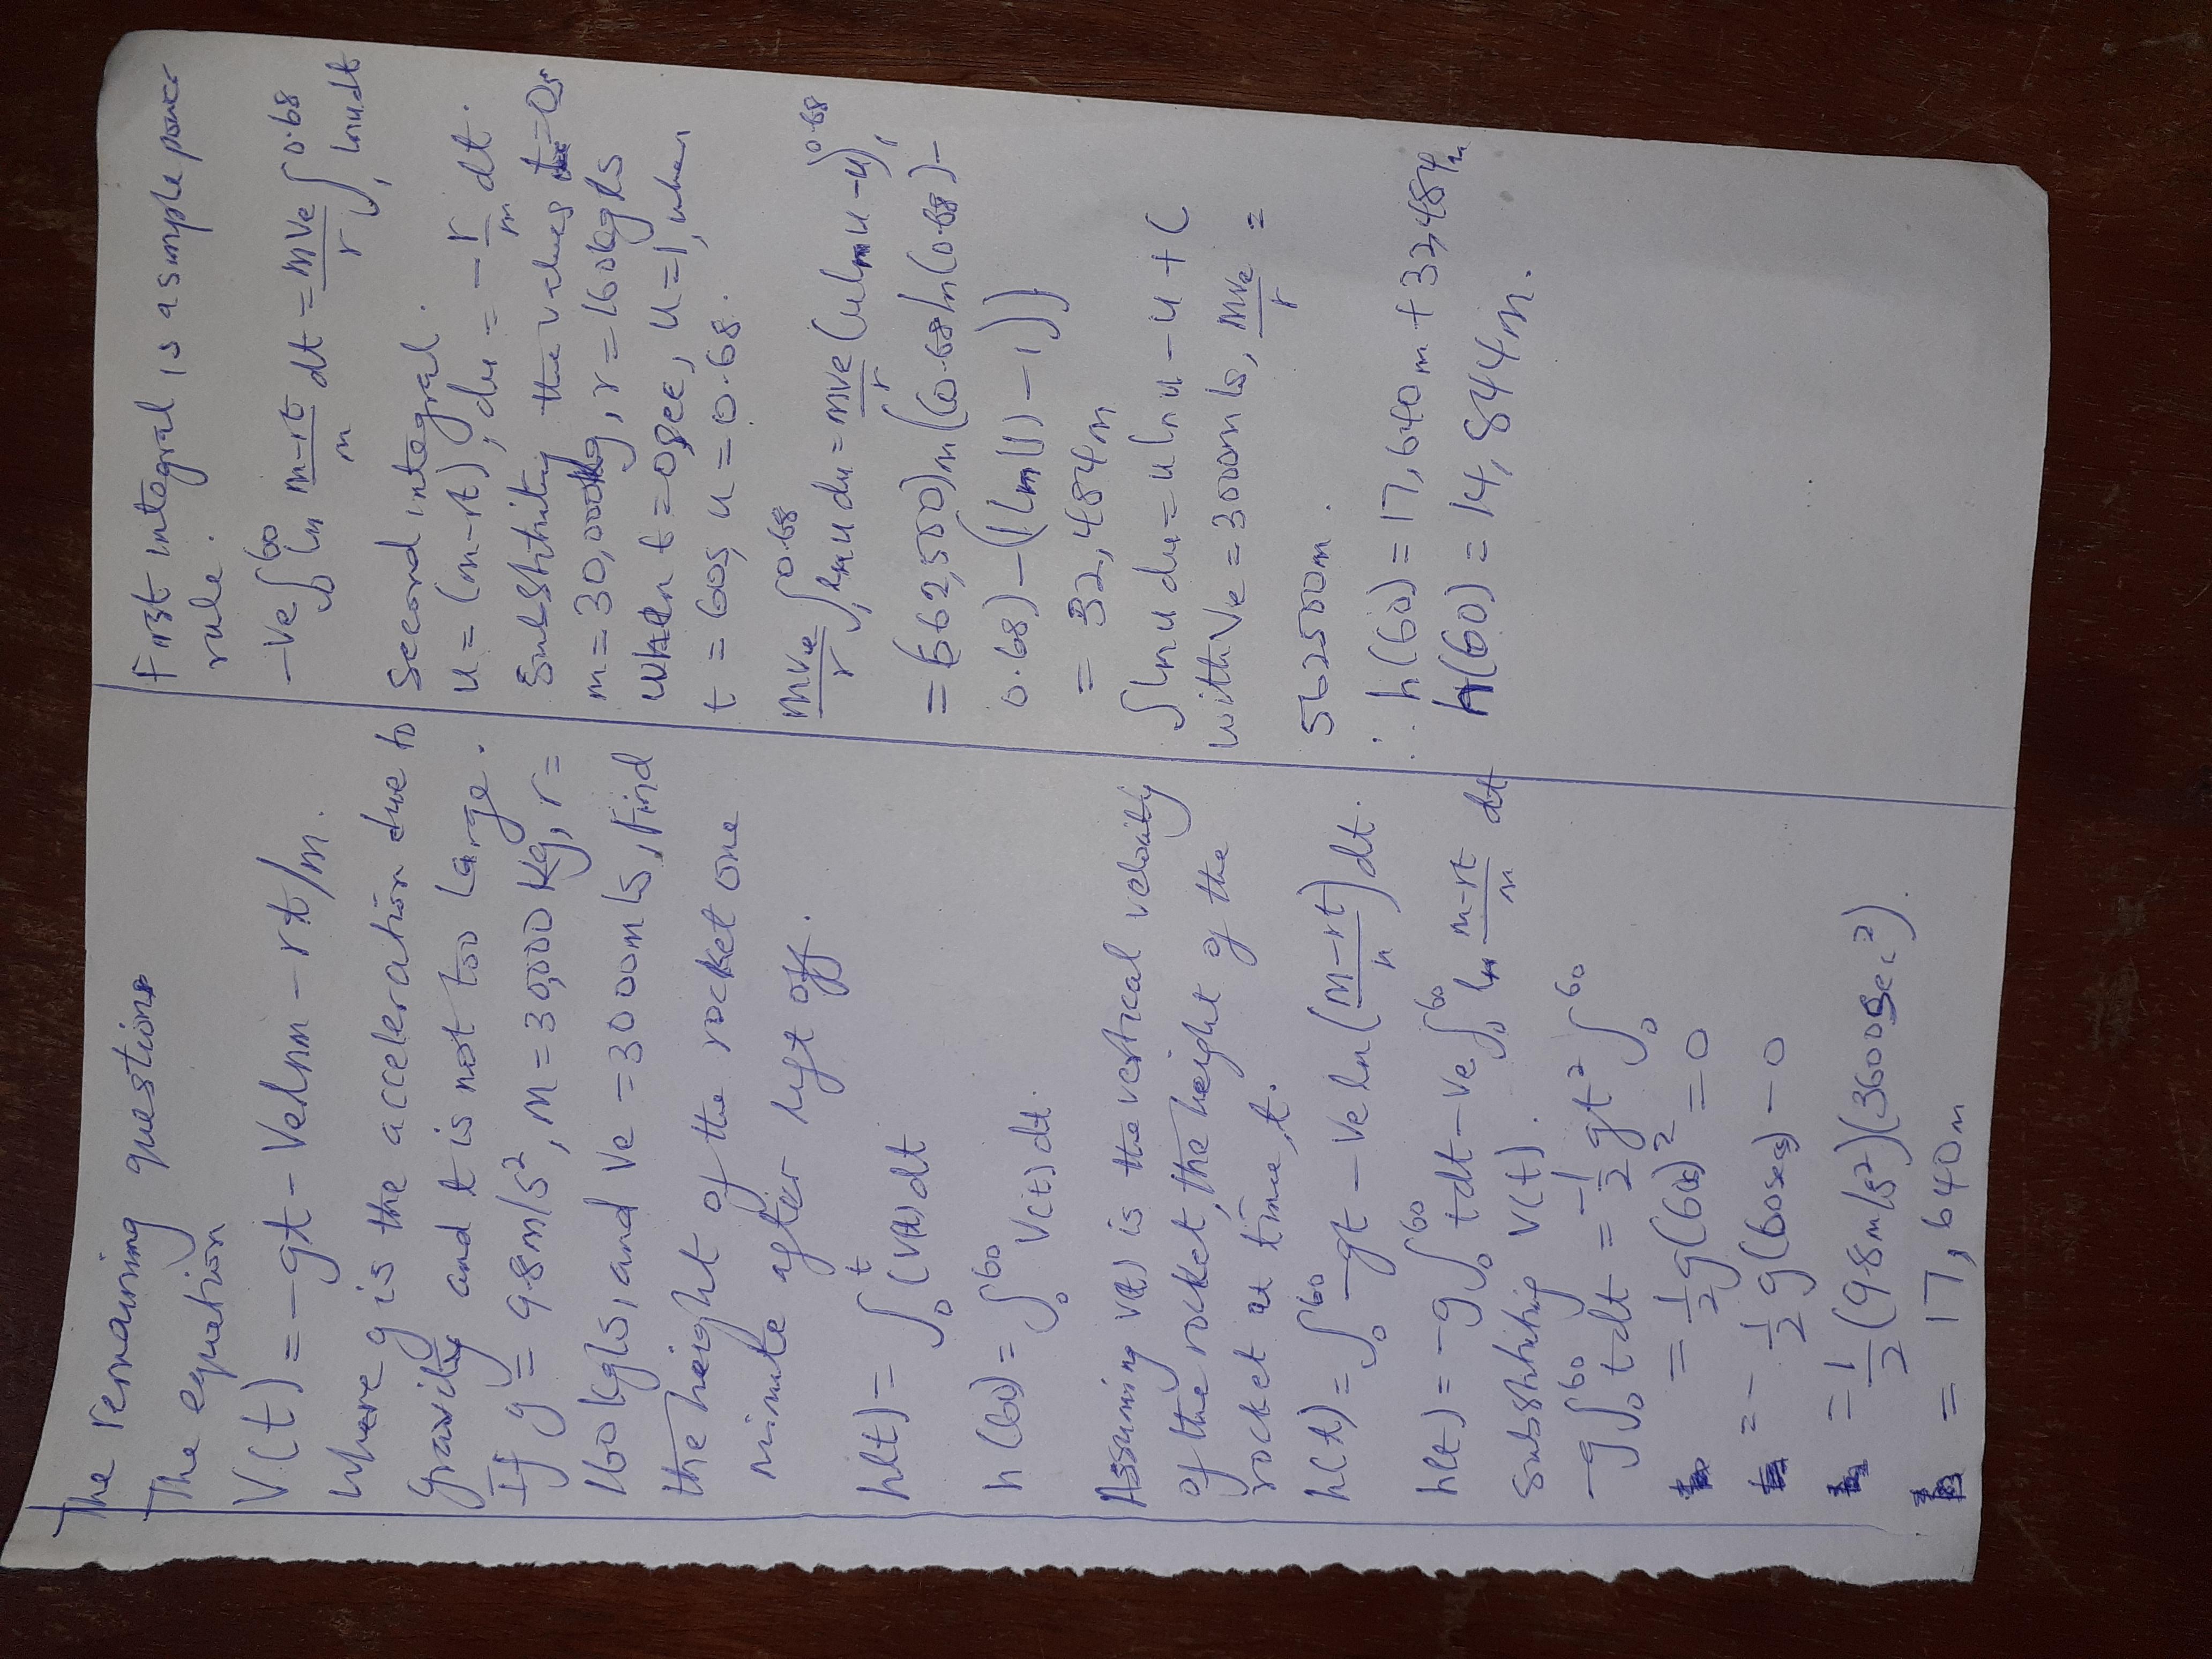 The remaining questions
The equation
V(t) = -gt - Velnm - rt/m.
where g is the acceleration due to
gravity and t is not too large.
If g = 9.8m/s², m = 30,000 kg, r =
160kg/s, and Ve = 3000m/s, Find
the height of the rocket one
minute after lift off.
h(t) = ∫₀ᵗ (V(t) dt
h(60) = ∫₀⁶⁰ V(t) dt.
Assuming V(t) is the vertical velocity
of the rocket, the height of the
rocket at time, t.
h(t) = ∫₀⁶⁰ -gt - Ve ln (m-rt/m) dt.
h(t) = -g ∫₀⁶⁰ t dt - Ve ∫₀⁶⁰ ln m-rt/m dt
Substituting V(t).
-g ∫₀⁶⁰ t dt = -1/2 gt² ∫₀⁶⁰
= 1/2 g(60)² = 0
= - 1/2 g(60sec) - 0
= 1/2 (9.8m/s²)(3600sec²).
= 17,640m
First integral is a simple power
rule.
-Ve ∫₀⁶⁰ ln m-rt/m dt = mve/r ∫₁^0.68 lnudt
Second integral.
u = (m-rt), du = -r/m dt.
Substituting the values t=0s
m = 30,000kg, r = 160kg/s
when t = 0sec, u = 1, when
t = 60s, u = 0.68.
mve/r ∫₁^0.68 lnu du = mve/r (ulnu-u)₁^0.68
= 562,500)m((0.68ln(0.68)-
0.68) - (1ln(1) - 1))
= 32,484m
∫lnu du = u lnu - u + C
with Ve = 3000m/s, mve/r =
562500m.
∴ h(60) = 17,640m + 32,484m
h(60) = 14,844m.